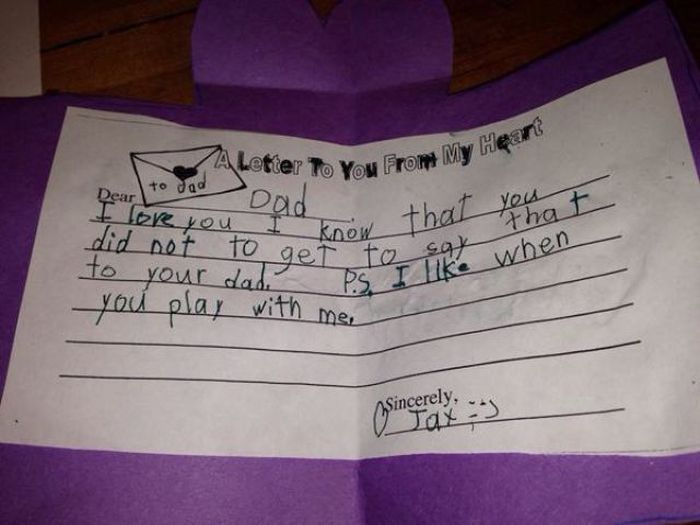 A Letter To You From My Heart
to dad
Dear Dad
I love you I know that you
did not to get to say that
to your dad. P.S. I like when
you play with me.
Sincerely,
Jax :-)